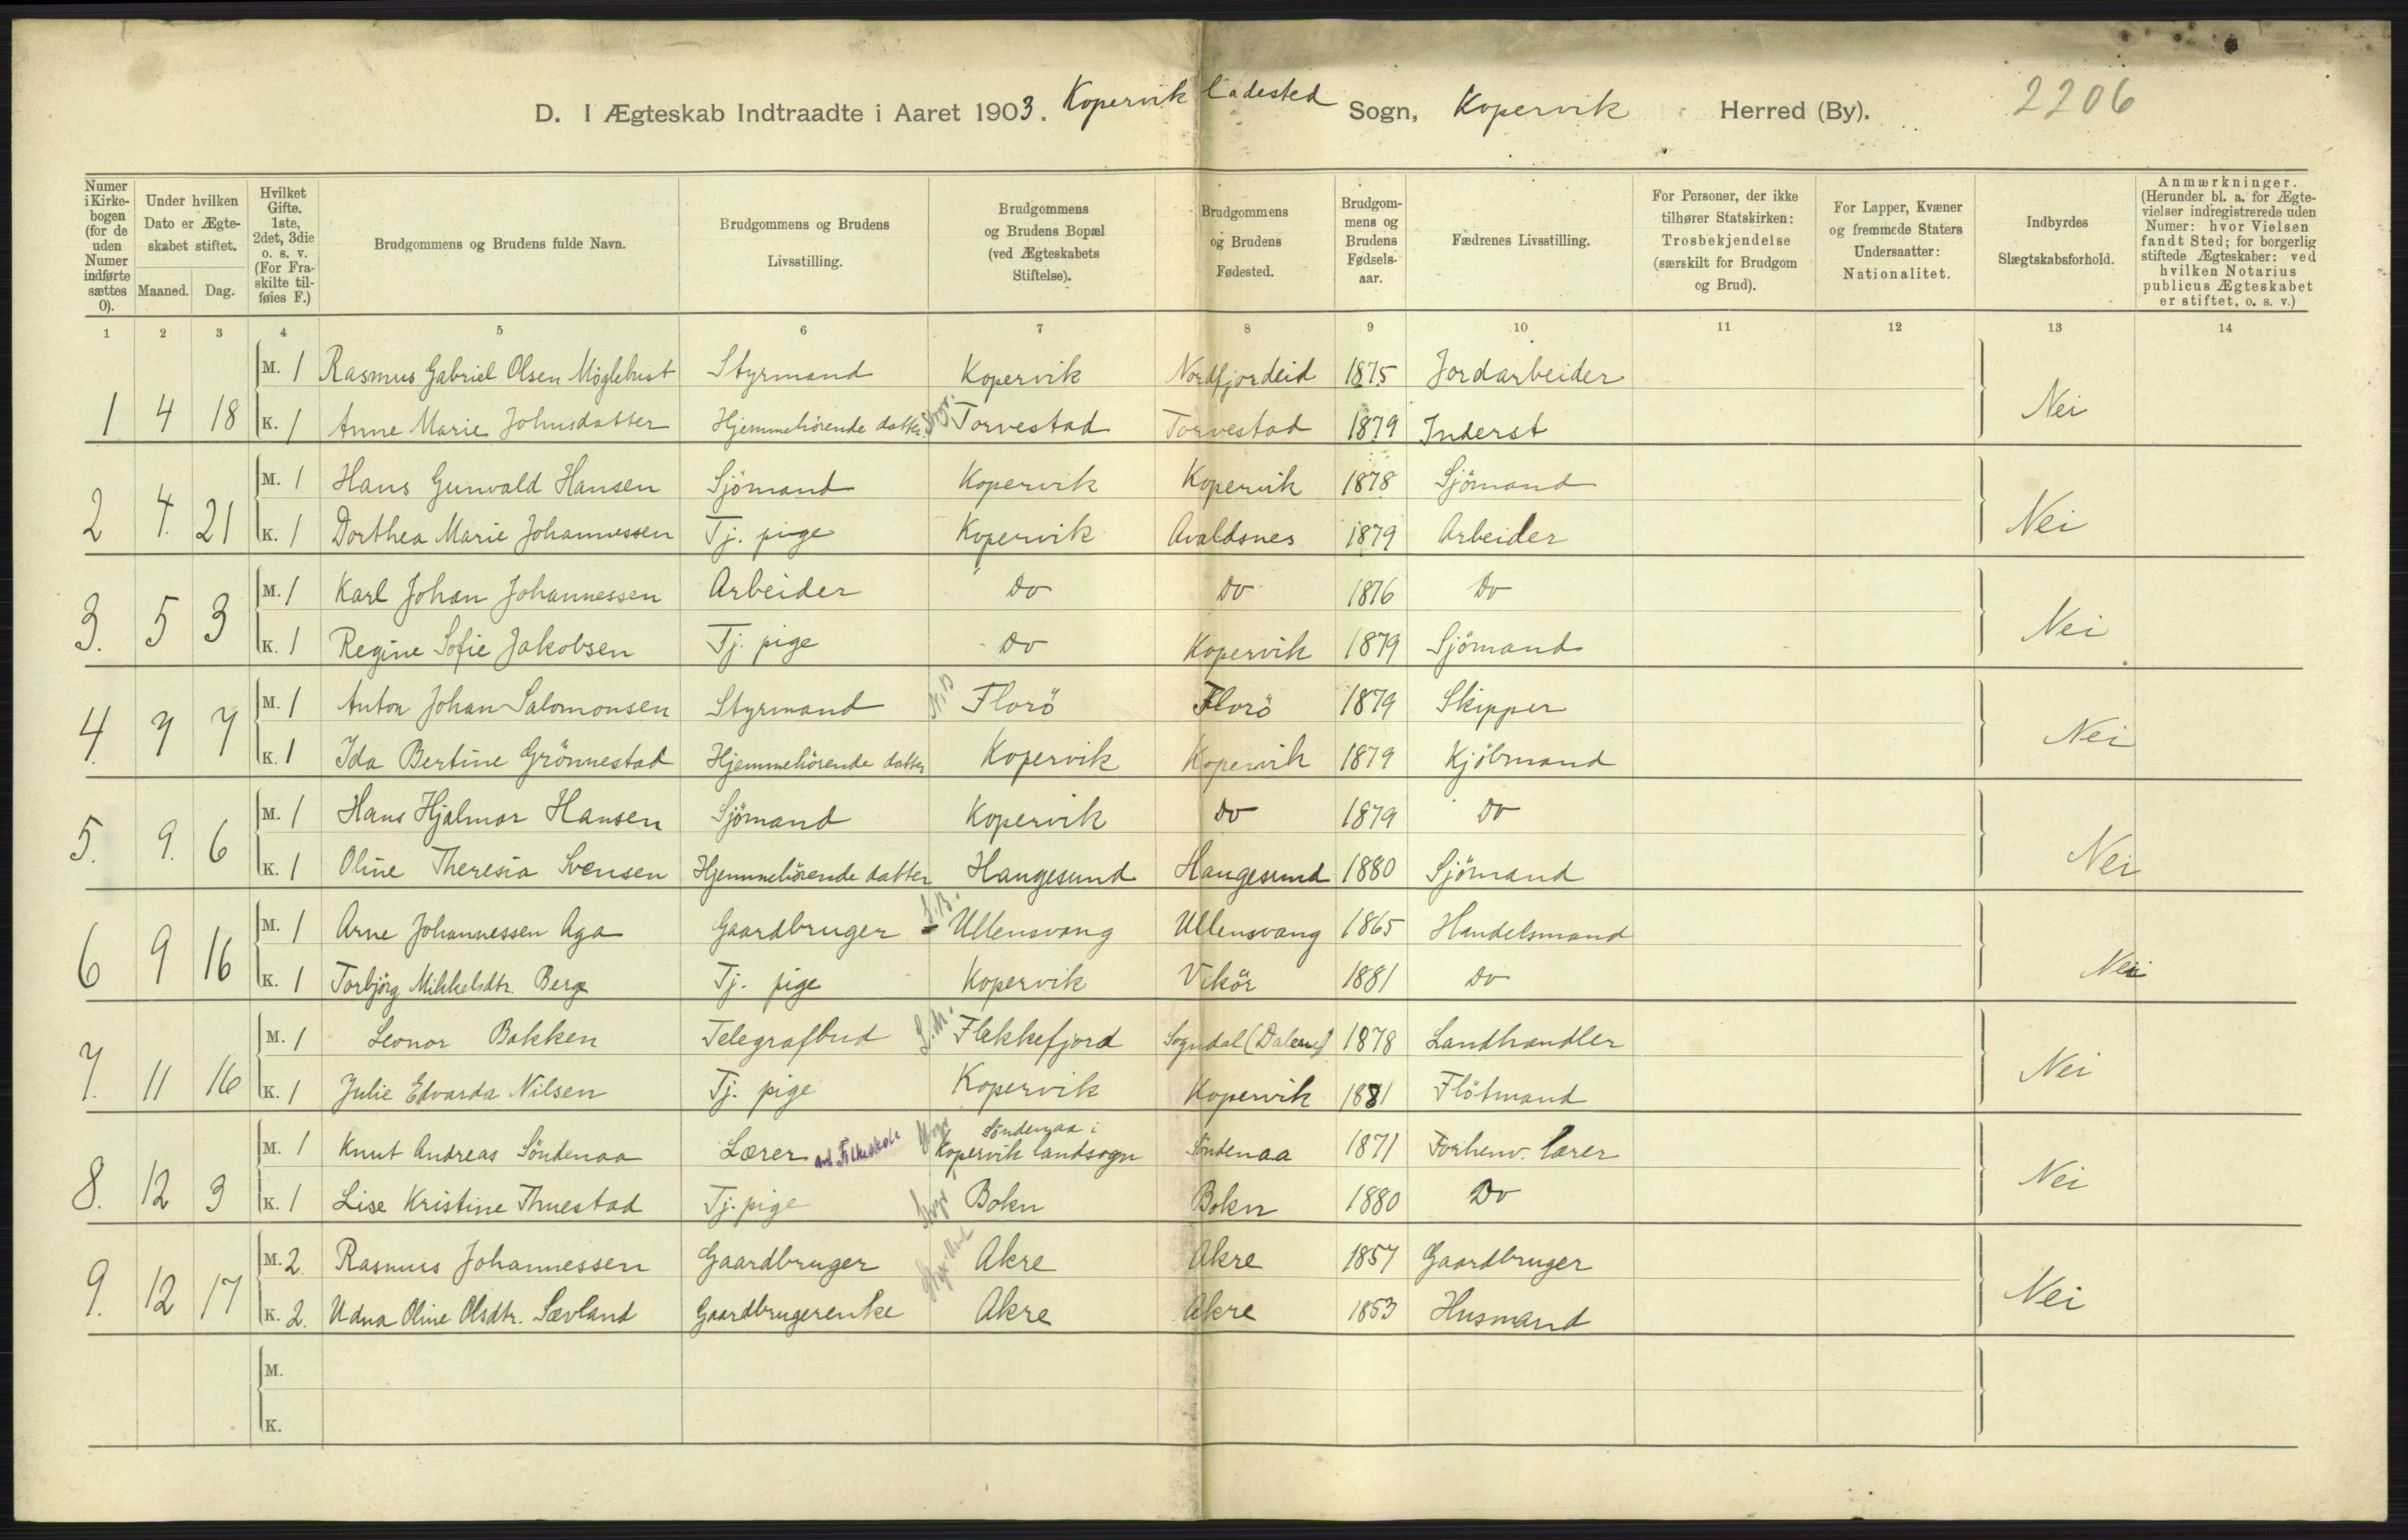 D. I Ægteskab Indtraadte i Aaret 1903. Kopervik ladested Sogn, Kopervik Herred (By). 2206
Numer i Kirkebogen (for de uden Numer indførte sættes 0). | Under hvilken Dato er Ægteskabet stiftet. Maaned. Dag. | Hvilket Gifte. 1ste, 2det, 3die o. s. v. (For Fraskilte tilføies F.) | Brudgommens og Brudens fulde Navn. | Brudgommens og Brudens Livsstilling. | Brudgommens og Brudens Bopæl (ved Ægteskabets Stiftelse). | Brudgommens og Brudens Fødested. | Brudgommens og Brudens Fødselsaar. | Fædrenes Livsstilling. | For Personer, der ikke tilhører Statskirken: Trosbekjendelse (særskilt for Brudgom og Brud). | For Lapper, Kvæner og fremmede Staters Undersaatter: Nationalitet. | Indbyrdes Slægtskabsforhold. | Anmærkninger. (Herunder bl. a. for Ægtevielser indregistrerede uden Numer: hvor Vielsen fandt Sted; for borgerlig stiftede Ægteskaber: ved hvilken Notarius publicus Ægteskabet er stiftet, o. s. v.)
1 2 3 4 5 6 7 8 9 10 11 12 13 14
M. 1 Rasmus Gabriel Olsen Myglebust Styrmand Kopervik Nordfjordeid 1875 Jordarbeider
1 4 18 K. 1 Anne Marie Johnsdatter Hjemmehörende datter Torvestad Torvestad 1879 Inderst Nei
M. 1 Hans Gunvald Hansen Sjömand Kopervik Kopervik 1878 Sjömand
2 4. 21 K. 1 Dorthea Marie Johannessen Tj. pige Kopervik Avaldsnes 1879 Arbeider Nei
M. 1 Karl Johan Johannessen Arbeider Do Do 1876 Do
3. 5 3 K. 1 Regine Sofie Jakobsen Tj. pige Do Kopervik 1879 Sjömand Nei
M. 1 Anton Johan Salomonsen Styrmand N.B Florö Florö 1879 Skipper
4. 7 7 K. 1 Ida Bertine Grönnestad Hjemmehörende datter Kopervik Kopervik 1879 Kjöbmand Nei
M. 1 Hans Hjalmar Hansen Sjömand Kopervik Do 1879 Do
5. 9. 6 K. 1 Oline Theresia Svensen Hjemmehörende datter Haugesund Haugesund 1880 Sjömand Nei
M. 1 Arne Johannessen Aga Gaardbruger S.B. Ullensvang Ullensvang 1865 Handelsmand
6 9 16 K. 1 Torbjörg Mikkelsdtr. Berge Tj. pige Kopervik Vikör 1881 Do Nei
M. 1 Leonor Bakken Telegrafbud L.M. Flekkefjord Sogndal (Dalerne) 1878 Landhandler
7. 11 16 K. 1 Julie Edvarda Nilsen Tj. pige Kopervik Kopervik 1881 Flötmand Nei
M. 1 Knut Andreas Söndenaa Lærer ved Folkeskole Söndenaa i Kopervik landsogn Söndenaa 1871 Forhenv. lærer
8. 12 3 K. 1 Lise Kristine Thuestad Tj. pige Bokn Bokn 1880 Do Nei
M. 2. Rasmus Johannessen Gaardbruger Akre Akre 1857 Gaardbruger
9. 12 17 K. 2. Udna Oline Olsdtr. Sævland Gaardbrugerenke Akre Akre 1853 Husmand Nei
M.
K.